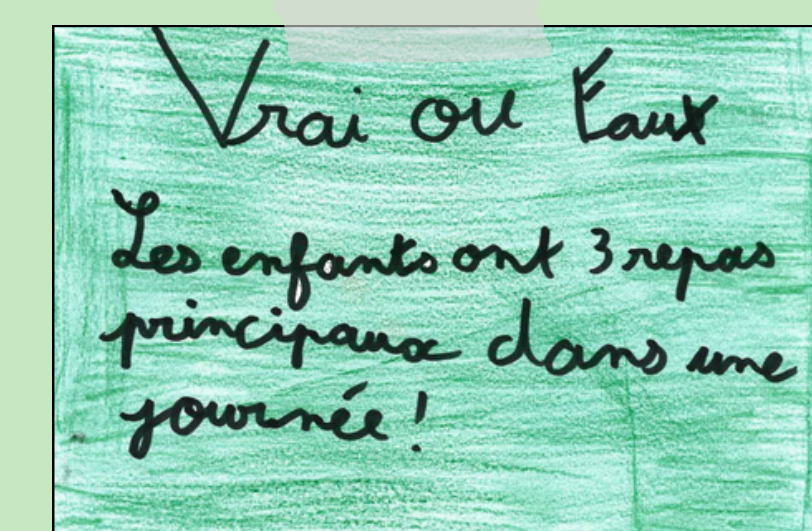 Vrai ou Faux
Les enfants ont 3 repas
principaux dans une
journée !